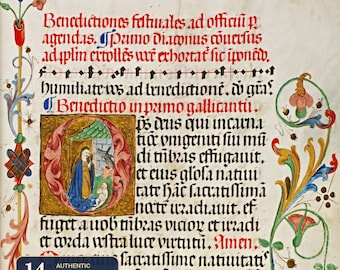 Benedictiones festiuales ad officiũ ꝑ
agendas. Primo diaconus cõuersus
ad ꝓplm extollẽs uocẽ exhortat' sic ĩponẽd.
humiliate uos ad benedictionẽ. do gr̃as
Benedictio in primo gallicantu.
Oꝑ̃s deus qui incarna
tiõe vnigeniti sui mũ
di tñbras effugauit,
et eius glosa natiui
tate hãc sacratissimã
noctẽ irradiauit. ef
fuget a uob tñbras vicior et irradiet
et corda vestra luce virtutũ. Amen.
sacratissimã natiuitate
14
AUTHENTIC